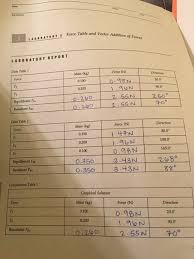 LABORATORY 2 Force Table and Vector Addition of Forces
LABORATORY REPORT
Data Table 1
Force Mass (kg) Force (N) Direction
F₁ 0.100 0.98N 20.0°
F₂ 0.200 1.96N 90.0°
Equilibrant 0.260 2.55N 250°
Resultant 0.260 2.55N 70°
Data Table 2
Force Mass (kg) Force (N) Direction
0.150 1.47N 30.0°
0.200 1.96N 100.0°
0.100 0.98N 145.0°
Equilibrant 0.350 3.43N 268°
Resultant 0.350 3.43N 88°
Calculations Table 1
Graphical Solution
Force Mass (kg) Force (N) Direction
F₁ 0.100 0.98N 20.0°
F₂ 0.200 1.96N 90.0°
Resultant 0.260 2.55N 70°